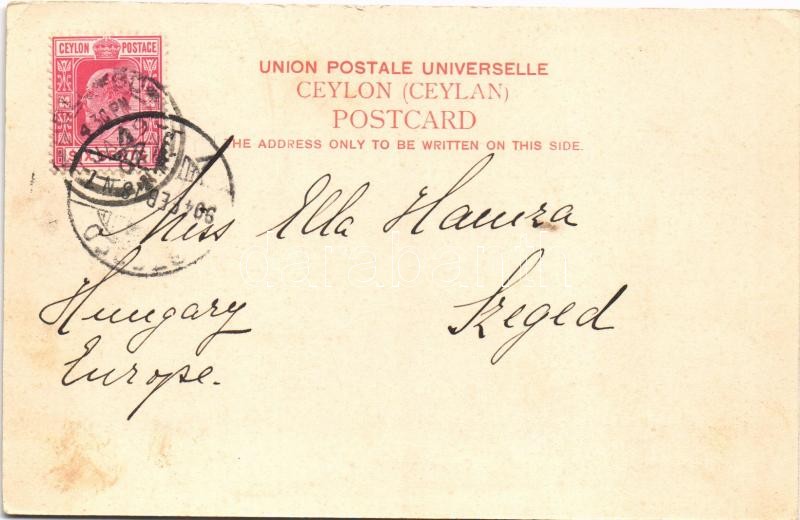 CEYLON POSTAGE
UNION POSTALE UNIVERSELLE
CEYLON (CEYLAN)
POSTCARD
THE ADDRESS ONLY TO BE WRITTEN ON THIS SIDE.
4 30 PM
904 FEB
Miss Ella Hamza
Hungary Szeged
Europe.
darabanth